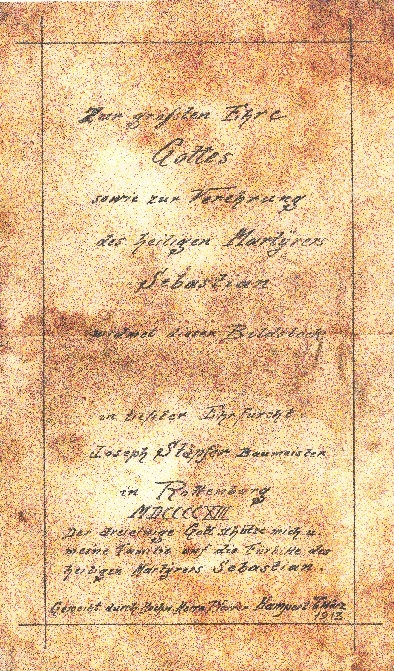 Zur größten Ehre
Gottes
sowie zur Verehrung
des heiligen Martÿrers
Sebastian
widmet diesen Bildstock
in tiefster Ehrfurcht
Joseph Stopfer Baumeister
in Rottenburg
MDCCCCXIII
Der dreieinige Gott schütze mich u.
meine Familie auf die Fürbitte des
heiligen Martyrers Sebastian.
Geweiht durch Hochw. Herrn Pfarrer
1913